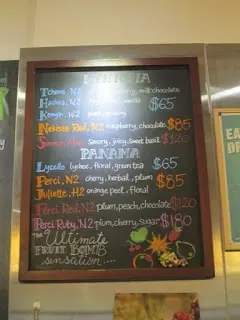 Tchemi, N2 milk chocolate
Hachira, N2
Kemgin, W2 $65
Nekisse Red, N2 raspberry, chocolate $85
savory, juicy, sweet basil $120
PANAMA
Lycello lychee, floral, green tea $65
Perci, N2 cherry, herbal, plum $85
Juliette, H2 orange peel, floral
Perci Red, N2 plum, peach, chocolate $120
Perci Ruby, N2 plum, cherry, sugar $180
The Ultimate
FRUIT BOMB
sensation....
EA
OF